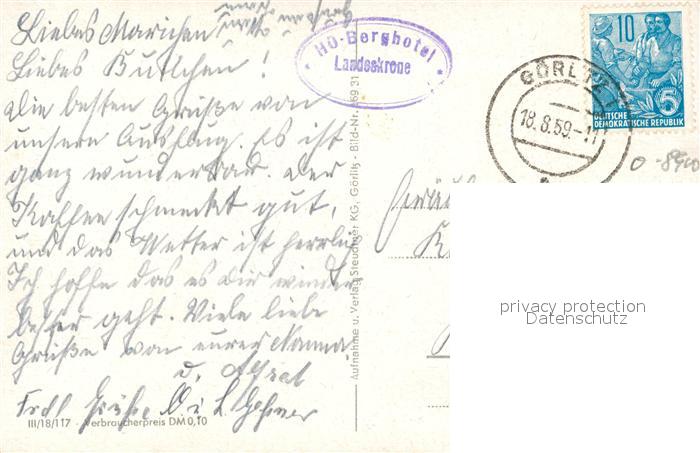 Liebes Mariechen
Liebes Butschen!
Die besten Grüße von
unsern Ausflug. Es ist
ganz wunderbar. Der
Kaffee schmeckt gut,
und das Wetter ist herrlich
Ich hoffe das es dir wieder
besser geht. Viele liebe
Grüße von eurer Mama
u.
Grüße
III/18/117 · Verbraucherpreis DM 0,10
Aufnahme u. Verlag Steudtner KG, Görlitz - Bild-Nr.
HO-Berghotel
Landeskrone
GÖRLITZ
18.8.59.-11
10
5
DEUTSCHE
DEMOKRATISCHE REPUBLIK
privacy protection
Datenschutz